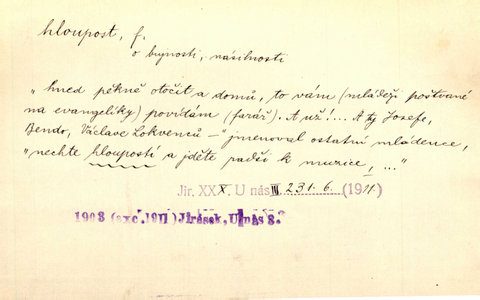 hloupost, f.
o bujnosti, násilnosti
„hned pěkně otočit a domů, to vám (mládeži poštvané
na evangelíky) povídám (farář). A už!... A ty Josefe,
Bendo, Václave Lokvenců –" jmenoval ostatní mládence,
„nechte hloupostí a jděte radši k muzice, ..."
Jir. XXX. U nás III. 231. 6. (1911.)
1903 (exc. 1911) Jirásek, U nás 3.